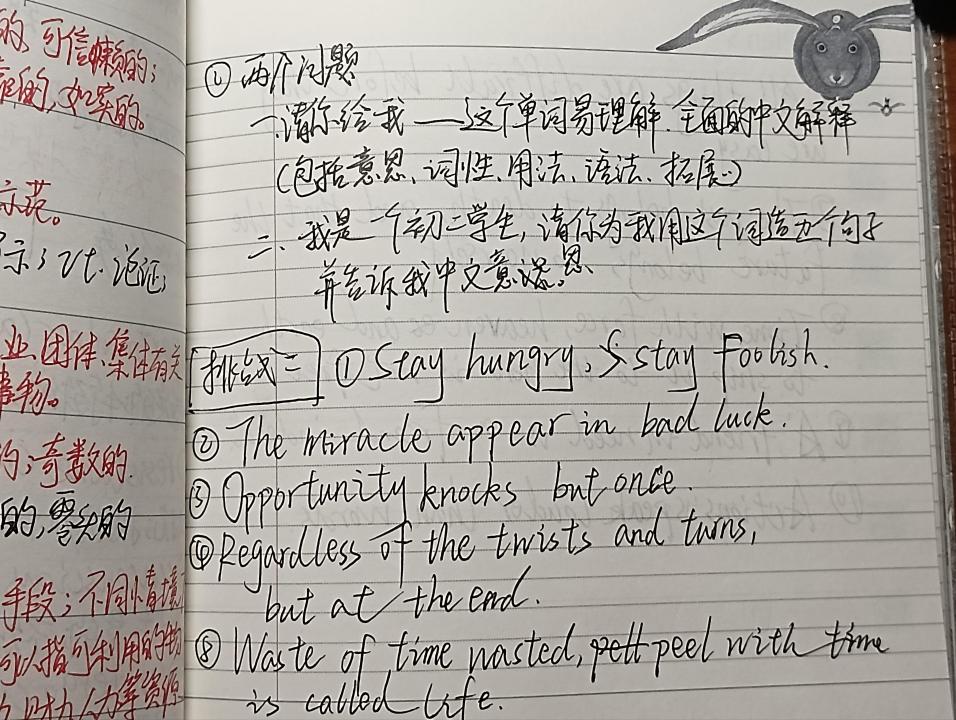 的,可信赖的;
靠的,如实的。
示范。
示;vt.论证;
业,团体、集体有关
事物。
的;奇数的.
的,零头的
手段;不同情境
可以指可利用的物
力,财力,人力等资源
④ 两个问题
一.请你给我——这个单词易理解.全面的中文解释
(包括意思、词性、用法、语法、拓展.)
二.我是一个初二学生,请你为我用这个词造五个句子
并告诉我中文意思.
挑战二 ①Stay hungry, stay Foolish.
② The miracle appear in bad luck.
③ Opportunity knocks but once.
④ Regardless of the twists and turns,
but at the end.
⑤ Waste of time wasted, peel with time
is called Life.